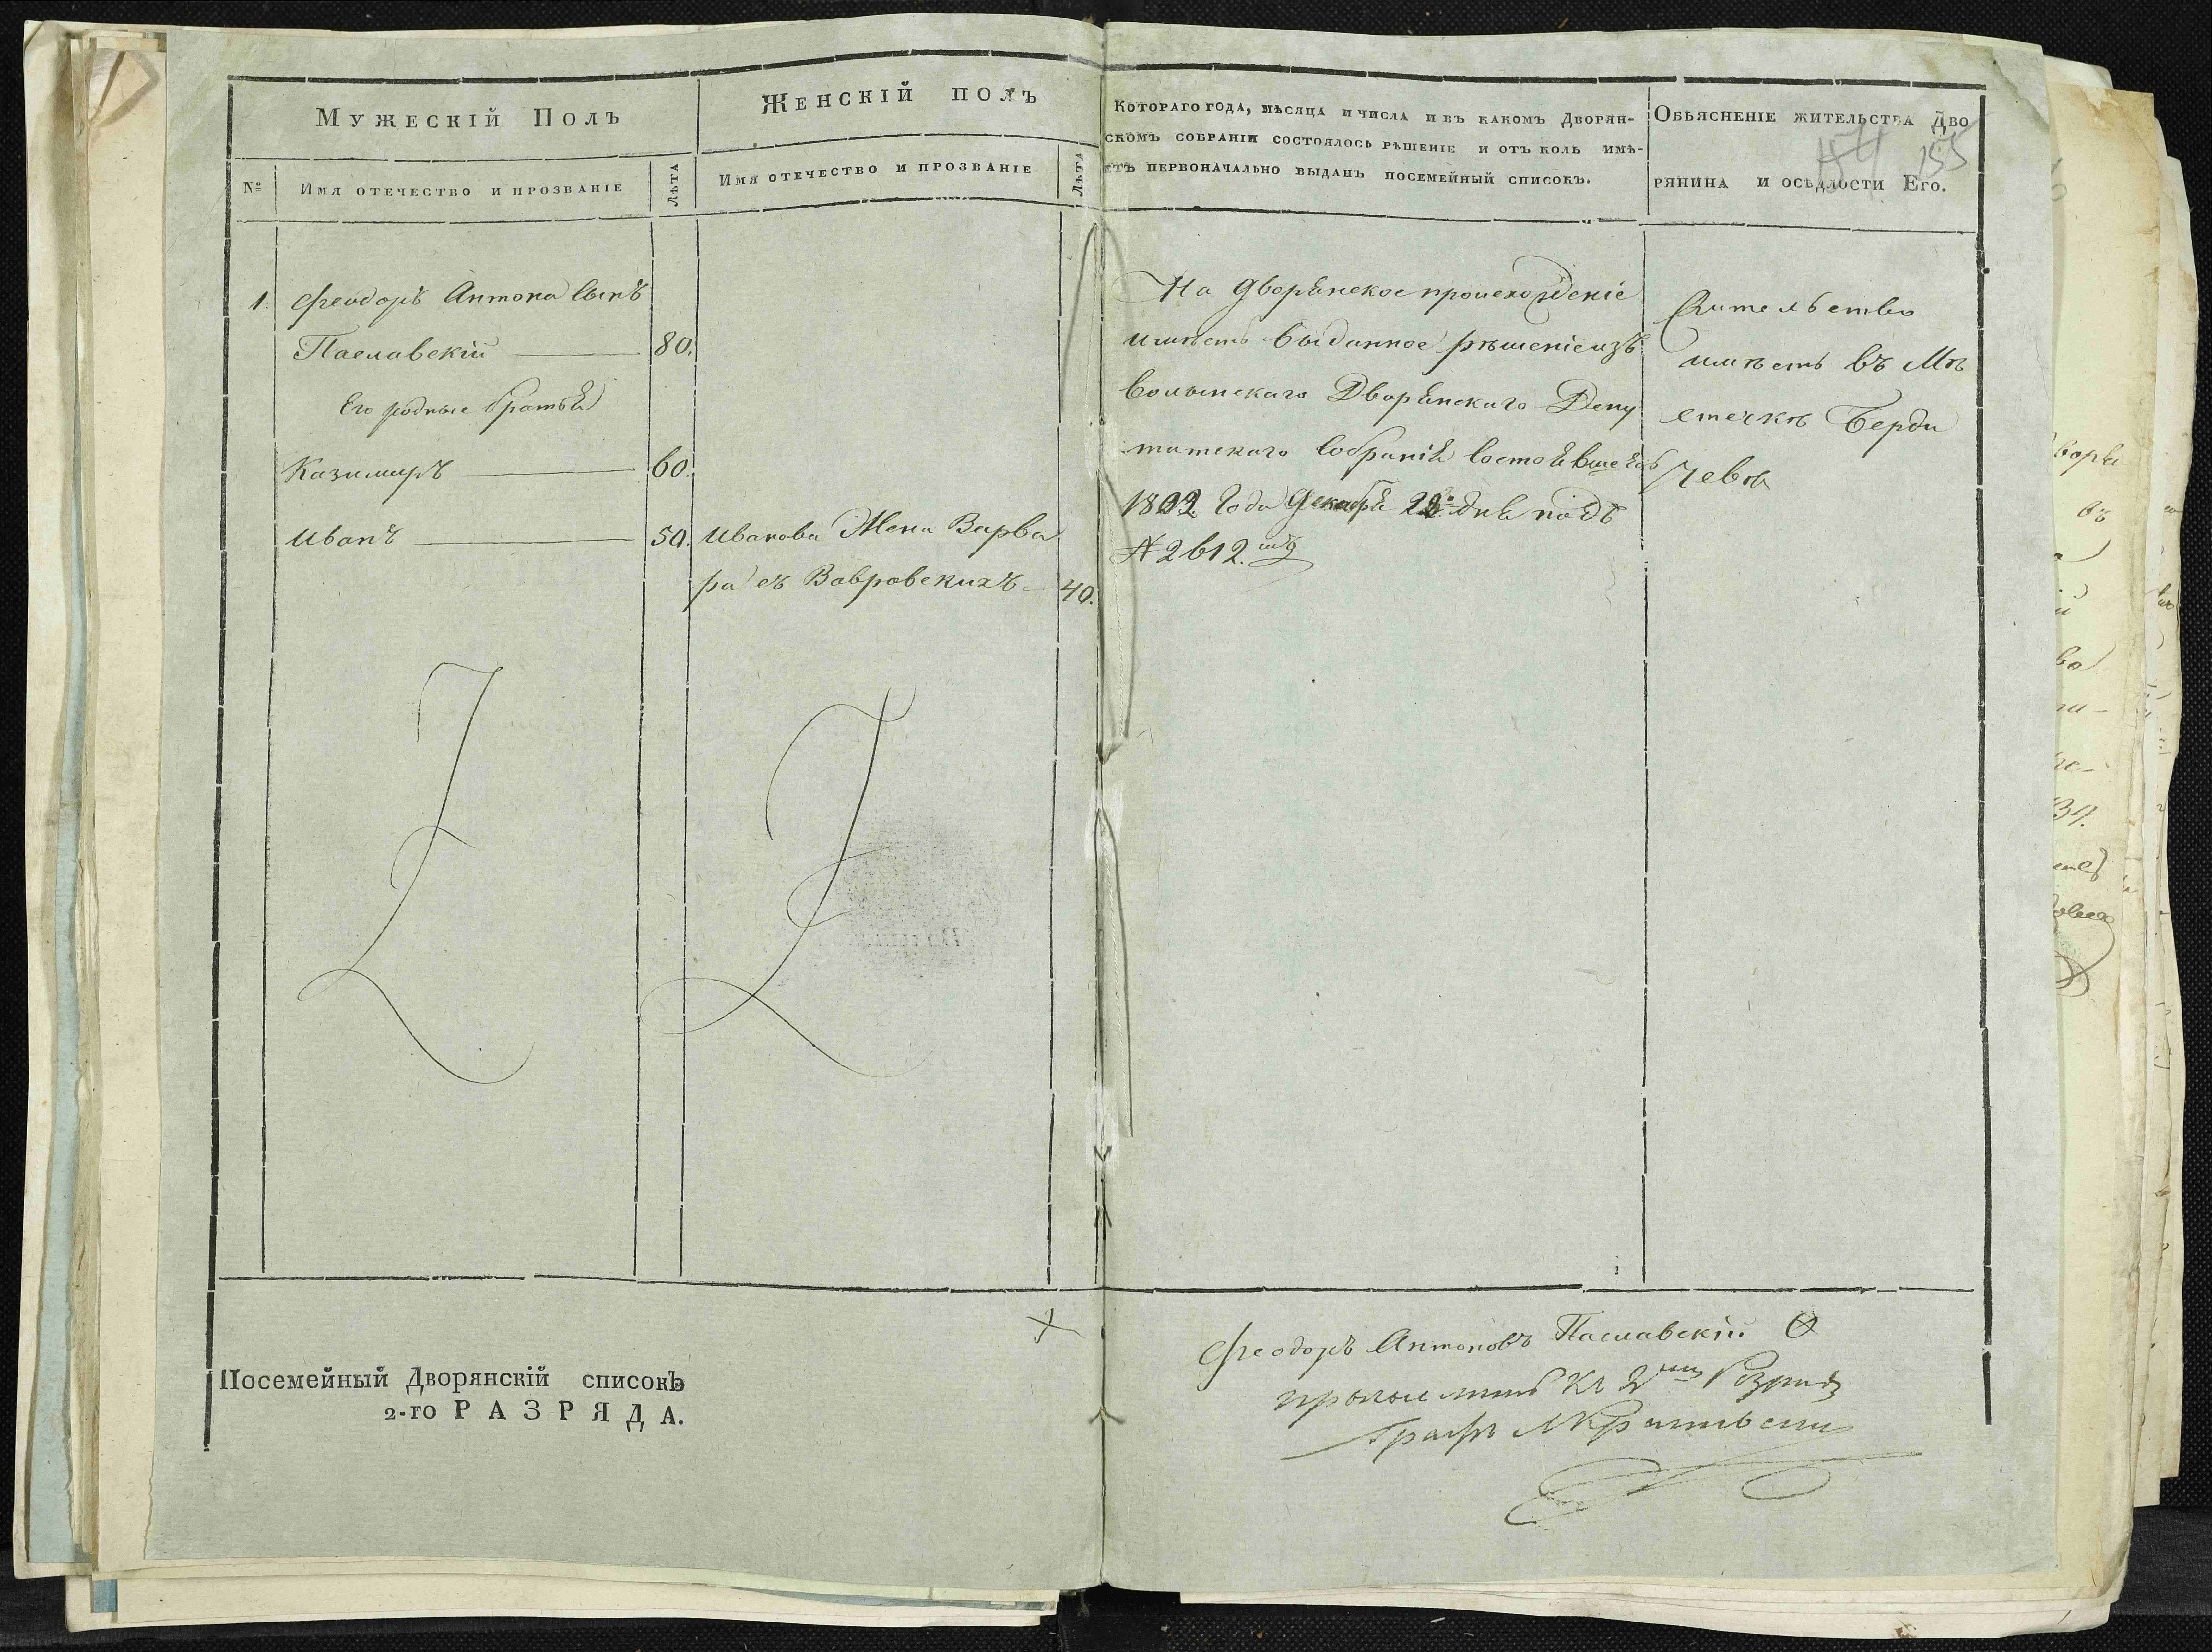 Мужескій Полъ
Женскій полъ
№ Имя отечество и прозваніе Лѣта
Имя отечество и прозваніе Лѣта
1. Феодоръ Антона Сынъ
Паславскій 80.
Его родные братья
Казимиръ 60.
Иванъ 50.
Иванова Жена Варва
ра съ Вавровскихъ 40.
Посемейный Дворянскій списокъ
2-го РАЗРЯДА.
Котораго года, мѣсяца и числа и въ какомъ Дворян-
скомъ собраніи состоялось рѣшеніе и отъ коль имѣ-
етъ первоначально выданъ посемейный списокъ.
На дворянское происхожденіе
имѣетъ выданное рѣшеніе изъ
Волынскаго Дворянскаго Депу
татскаго Собранія состоявшееся
1802 Года Декабря 22го дня подъ
№ 2612.мъ
155
Обьясненіе жительства Дво
рянина и осѣдлости Его.
Жительство
имѣетъ въ Мѣ
стечкѣ Берди
чевѣ
Феодоръ Антоновъ Паславскій
Графъ